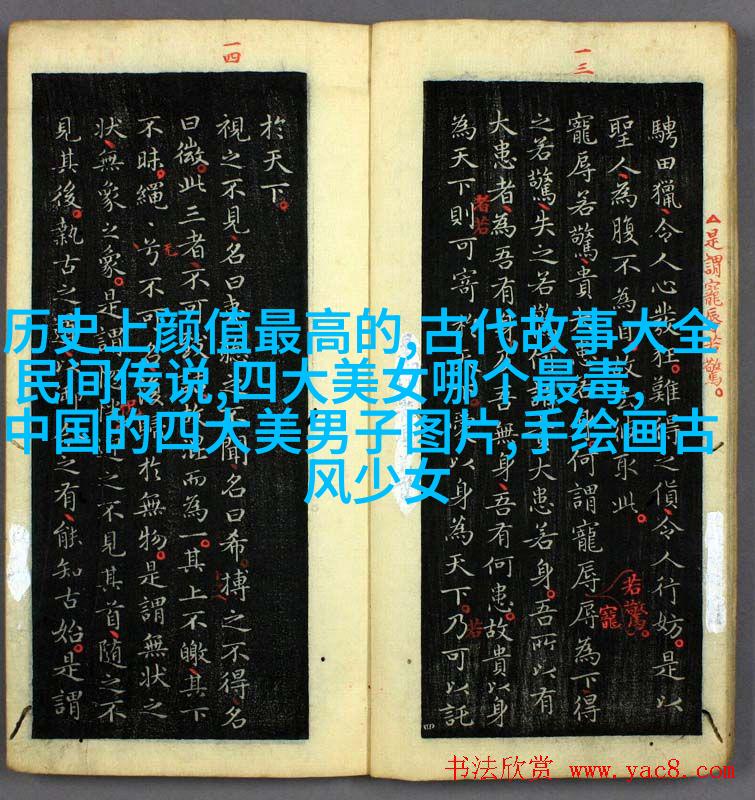 一三
一四
騁田獵令人心發狂。難得之貨令人行妨。是以
聖人為腹不為目故去取此。
寵辱若驚貴大患若何謂寵辱辱為下得
之若驚失之若驚何大患若身。吾所以有
大患者為吾有身及吾無身吾有何患。故貴以身
為天下則可寄於以身為天下。乃可以託
△是謂寵辱若驚。
者若
若驚。
寵
若
於天下。
視之不見名曰夷聽之不聞名曰希搏之不得名
曰微此三者不可致故而為一其上不皦其下
不昧。繩〻兮不可名復歸於無物。是謂無狀之
狀無象之象。是謂之不見其首隨之不
見其後。執古之之有能知古始。是謂
历史上颜值最高的,古代故事大全
民间传说,四大美女哪个最毒,
中国的四大美男子图片,手绘画古
风少女
书法欣赏 www.yac8.com